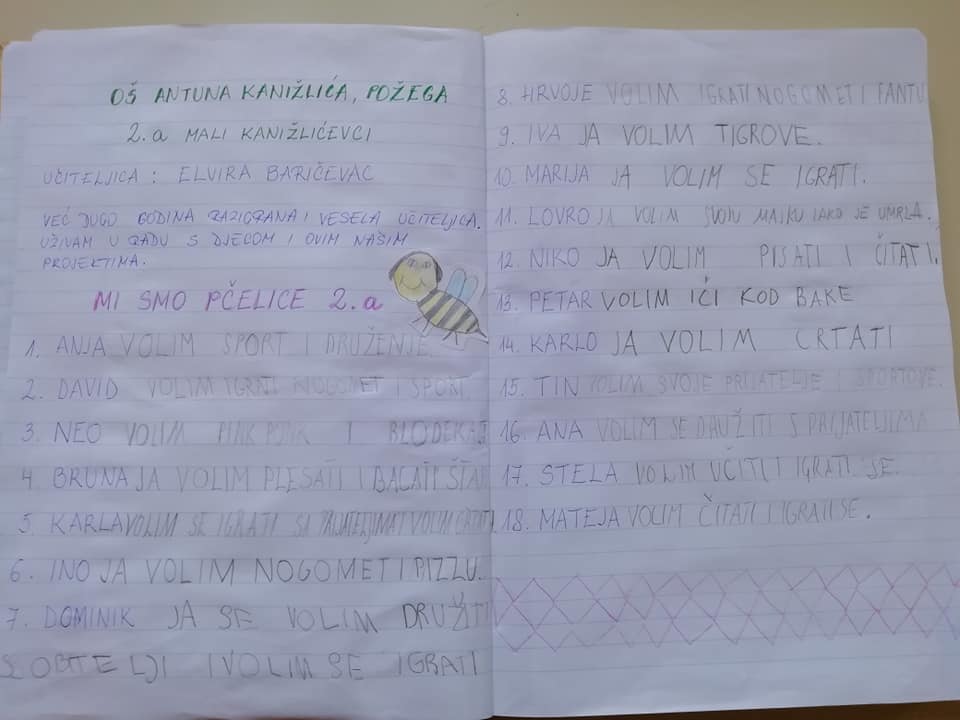 OŠ ANTUNA KANIŽLIĆA, POŽEGA
2.a MALI KANIŽLIĆEVCI
UČITELJICA : ELVIRA BARIČEVAC
VEĆ DUGO GODINA RAZIGRANA I VESELA UČITELJICA.
UŽIVAM U RADU S DJECOM I OVIM NAŠIM
PROJEKTIMA.
MI SMO PČELICE 2.a
1. ANJA VOLIM SPORT I DRUŽENJE.
2. DAVID VOLIM IGRATI NOGOMET I SPORT.
3. NEO VOLIM I
4. BRUNA JA VOLIM PLESATI I BACATI
5. KARLA VOLIM SE IGRATI SA PRIJATELJIMA I VOLIM CRTATI
6. INO JA VOLIM NOGOMET I PIZZU.
7. DOMINIK JA SE VOLIM DRUŽITI
S OBITELJI I VOLIM SE IGRATI
8. HRVOJE VOLIM IGRATI NOGOMET I
9. IVA JA VOLIM TIGROVE.
10. MARIJA JA VOLIM SE IGRATI.
11. LOVRO JA VOLIM SVOJU MAJKU IAKO JE UMRLA.
12. NIKO JA VOLIM PISATI I ČITATI.
13. PETAR VOLIM IĆI KOD BAKE
14. KARLO JA VOLIM CRTATI
15. TIN VOLIM SVOJE PRIJATELJE I SPORTOVE.
16. ANA VOLIM SE DRUŽITI S PRIJATELJIMA
17. STELA VOLIM UČITI I IGRATI SE.
18. MATEJA VOLIM ČITATI I IGRATI SE.